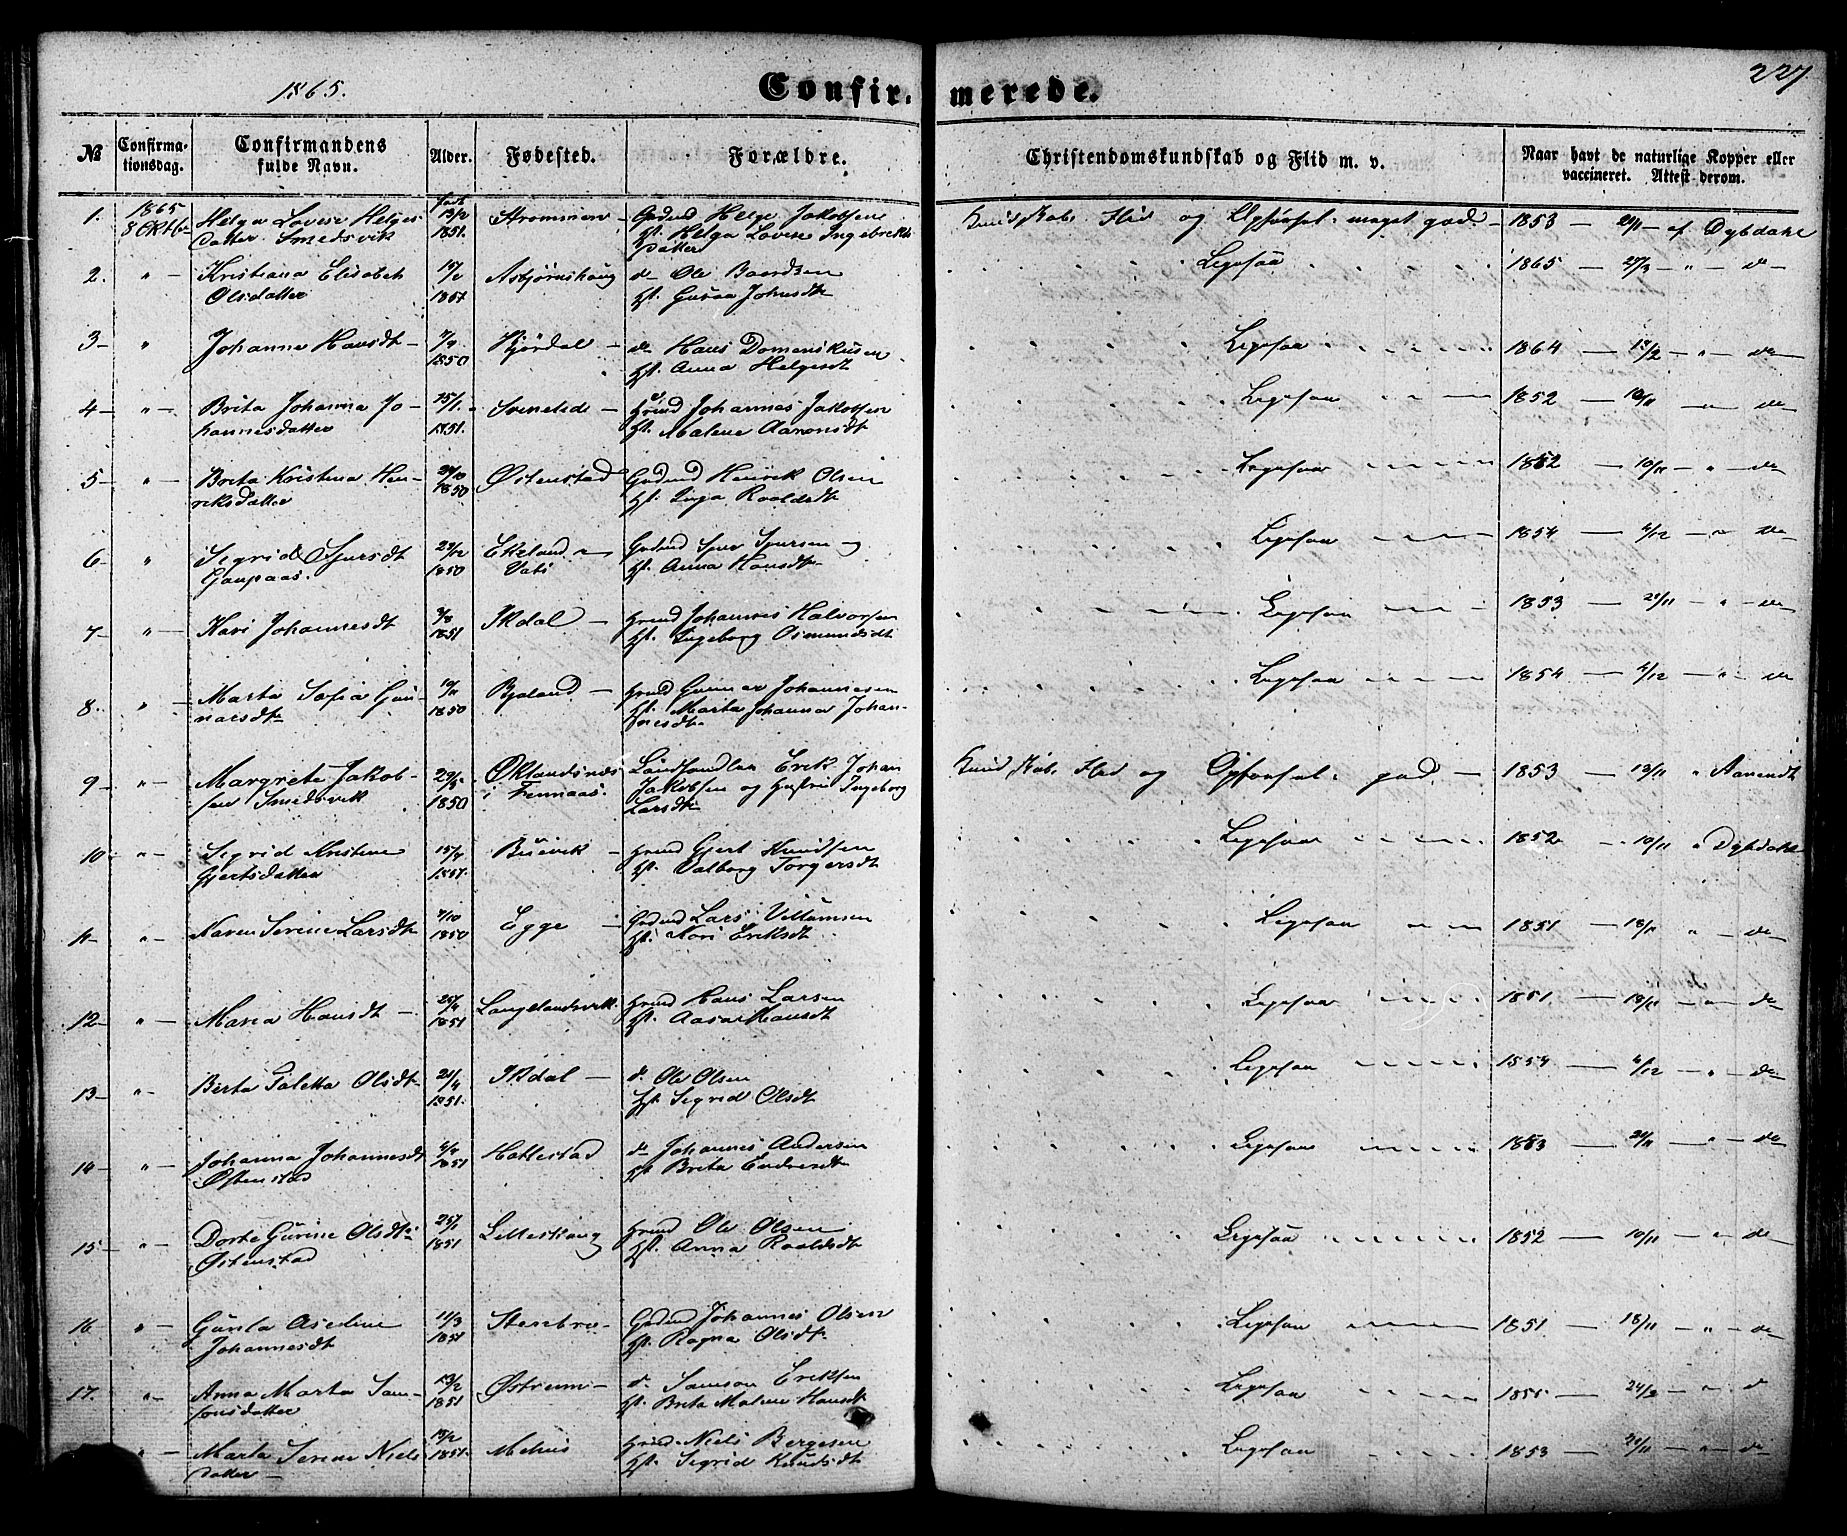 1865.
Confir- merede.
227
№ Confirmationsdag. Confirmandens fulde Navn. Alder. Fødested. Forældre. Christendomskundskab og Flid m. v. Naar havt de naturlige Kopper eller vaccineret. Attest derom.
1. 1865 8 Oktbr Helga Lovise Helgesdatter Smedsvik født 13/2 1851. Strømmen Helge Jakobsen Hst. Helga Lovise Ingebrektsdatter Flid og Opførsel meget god 1853 — 21/11 af Dybdahl
2. " Kristiana Elisabet Olsdatter 1851 Asbjørnshaug do Ole Baardsen Hst. Johnsdt Ligesaa 1865 — 27/3 " do
3 " Johanna Hansdt 1850 do Hans Hst. Anna Helgesdt Ligesaa 1864 — do
4 " Brita Johanna Johannesdatter 25/1 1851. Svinelid Johannes Jakobsen Hst. Malene Aaronsdt Ligesaa 1852 10/11 do
5 " Brita Kristina Henriksdatter 24/10 1850 Østenstad Henrik Olsen Hst. Inga Roaldsdt Ligesaa 1852 — 10/11 " do
6 " Sigrid Sjursdt Gaupaas. 29/12 1850 Ekeland Vats Sjur Sjursen og Hst. Anna Hansdt Ligesaa 1854 — 4/12 " do
7 " Kari Johannesdt 3/8 1851 Ikdal Johannes Halvorsen Hst. Ingeborg Osmundsdt Ligesaa 1853 — 21/11 " do
8 " Marta Sofia Gunnarsdt 19/11 1850 Bjoland Gunnar Johannesen Hst. Marta Johanna Johannesdt Ligesaa 1854 — 4/12 " do
9 " Margrete Jakobsen Smedsvik 29/5 1850 Øklandsnæs i Finnaas. Landhandler Erik Johan Jakobsen og Hustru Ingeborg Larsdt Flid og Opførsel god 1853 — 13/11 " Aarrestdt
10 " Sigrid Kristine Gjertsdatter 15/4 1851. Buevik Gjert Knudsen Hst. Valborg Torgersdt Ligesaa 1852 10/11 " Dybdahl
11 " Karen Serine Larsdt 7/10 1850 Egge Lars Villumsen Hst. Kari Eriksdt Ligesaa 1851 — 18/11 " do
12 " Maria Hansdt 25/4 1851 Langelandsvik Hans Larsen Hst. Aasa Hansdt Ligesaa 1851 — 18/11 do
13 " Berta Taletta Olsdt 21/4 1851. Ikdal do Ole Olsen Hst. Sigrid Olsdt Ligesaa 1854 4/12 " do
14 " Johanna Johannesdt Østenstad 1851 Hattestad do Johannes Andersen Hst. Brita Endresdt Ligesaa 1853 21/11 " do
15 " Dorte Gurine Olsdt Østenstad 25/1 1851 Litleskaug Ole Olsen Hst. Anna Roaldsdt Ligesaa 1852 — 10/11 do
16 " Gunla Aseline Johannesdt 11/3 1851 Stensbru Johannes Olsen Hst. Ragna Olsdt Ligesaa 1851. 18/11 " do
17. " Anna Marta Samsonsdatter 13/2 1851 Østrem do Samson Eriksen Hst. Brita Malene Hansdt Ligesaa 1855 — 24/2 do
" Marta Serine Nielsdatter 1851. Mehus Niels Børgesen Hst. Sigrid Knudsdt Ligesaa 1853 — 21/11 do